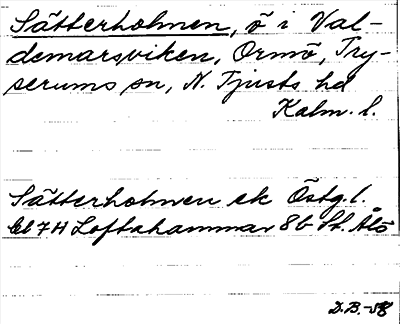 Sätterholmen, ö i Val-
demarsviken, Ormö, Try-
serums sn, N. Tjusts hd
Kalm. l.
Sätterholmen ek Östg. l.
bl 7H Loftahammar 8b St. Ålö
D.B.-58